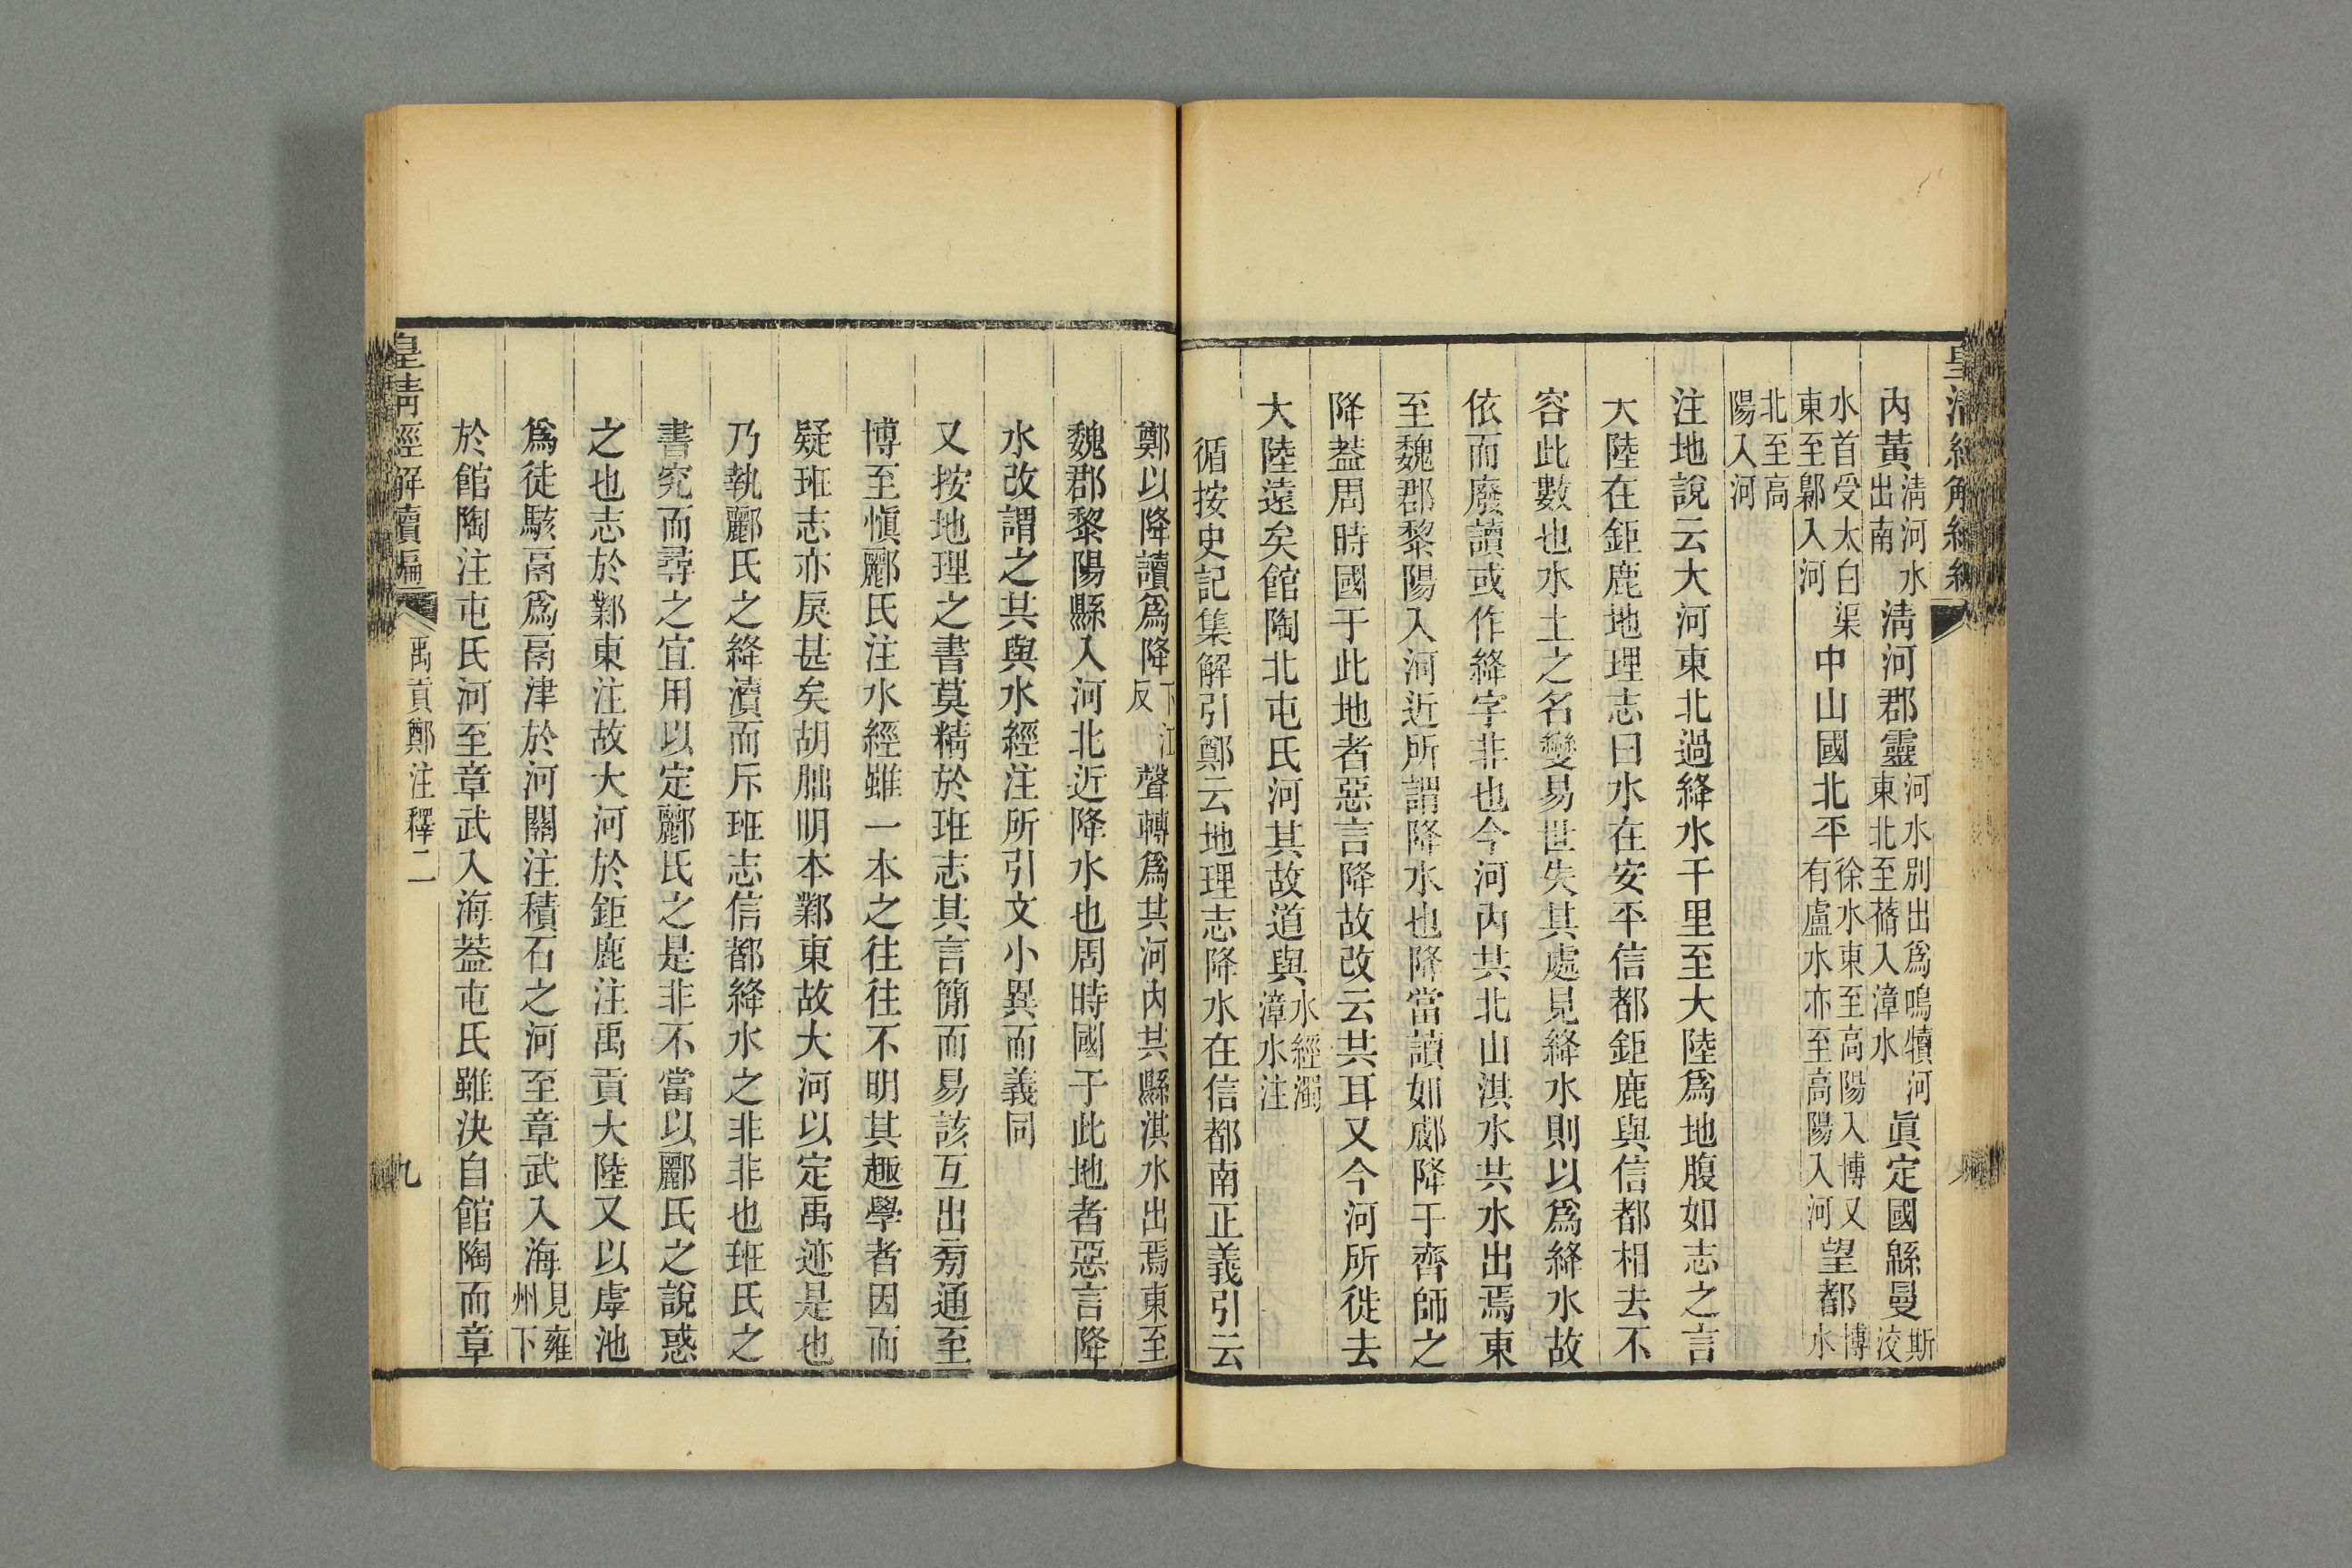 內黃淸河水出南淸河郡靈河水別出爲鳴犢河東北至蓨入漳水眞定國緜曼斯洨
水首受太白渠東至鄡入河中山國北平徐水東至高陽入博又有盧水亦至高陽入河望都博水
北至高陽入河
注地說云大河東北過絳水千里至大陸爲地腹如志之言
大陸在鉅鹿地理志曰水在安平信都鉅鹿與信都相去不
容此數也水土之名變易世失其處見絳水則以爲絳水故
依而廢讀或作絳字非也今河內共北山淇水共水出焉東
至魏郡黎陽入河近所謂降水也降當讀如郕降于齊師之
降葢周時國于此地者惡言降故改云共耳又今河所徙去
大陸遠矣館陶北屯氏河其故道與水經濁漳水注
循按史記集解引鄭云地理志降水在信都南正義引云
鄭以降讀爲降下江反聲轉爲共河內共縣淇水出焉東至
魏郡黎陽縣入河北近降水也周時國于此地者惡言降
水改謂之共與水經注所引文小異而義同
又按地理之書莫精於班志其言簡而易該互出旁通至
博至愼酈氏注水經雖一本之往往不明其趣學者因而
疑班志亦戾甚矣胡朏明本鄴東故大河以定禹迹是也
乃執酈氏之絳瀆而斥班志信都絳水之非非也班氏之
書究而尋之宜用以定酈氏之是非不當以酈氏之說惑
之也志於鄴東注故大河於鉅鹿注禹貢大陸又以虖池
爲徒駭鬲爲鬲津於河關注積石之河至章武入海見雍州下
於館陶注屯氏河至章武入海葢屯氏雖決自館陶而章
皇淸經解續編
禹貢鄭注釋二
九